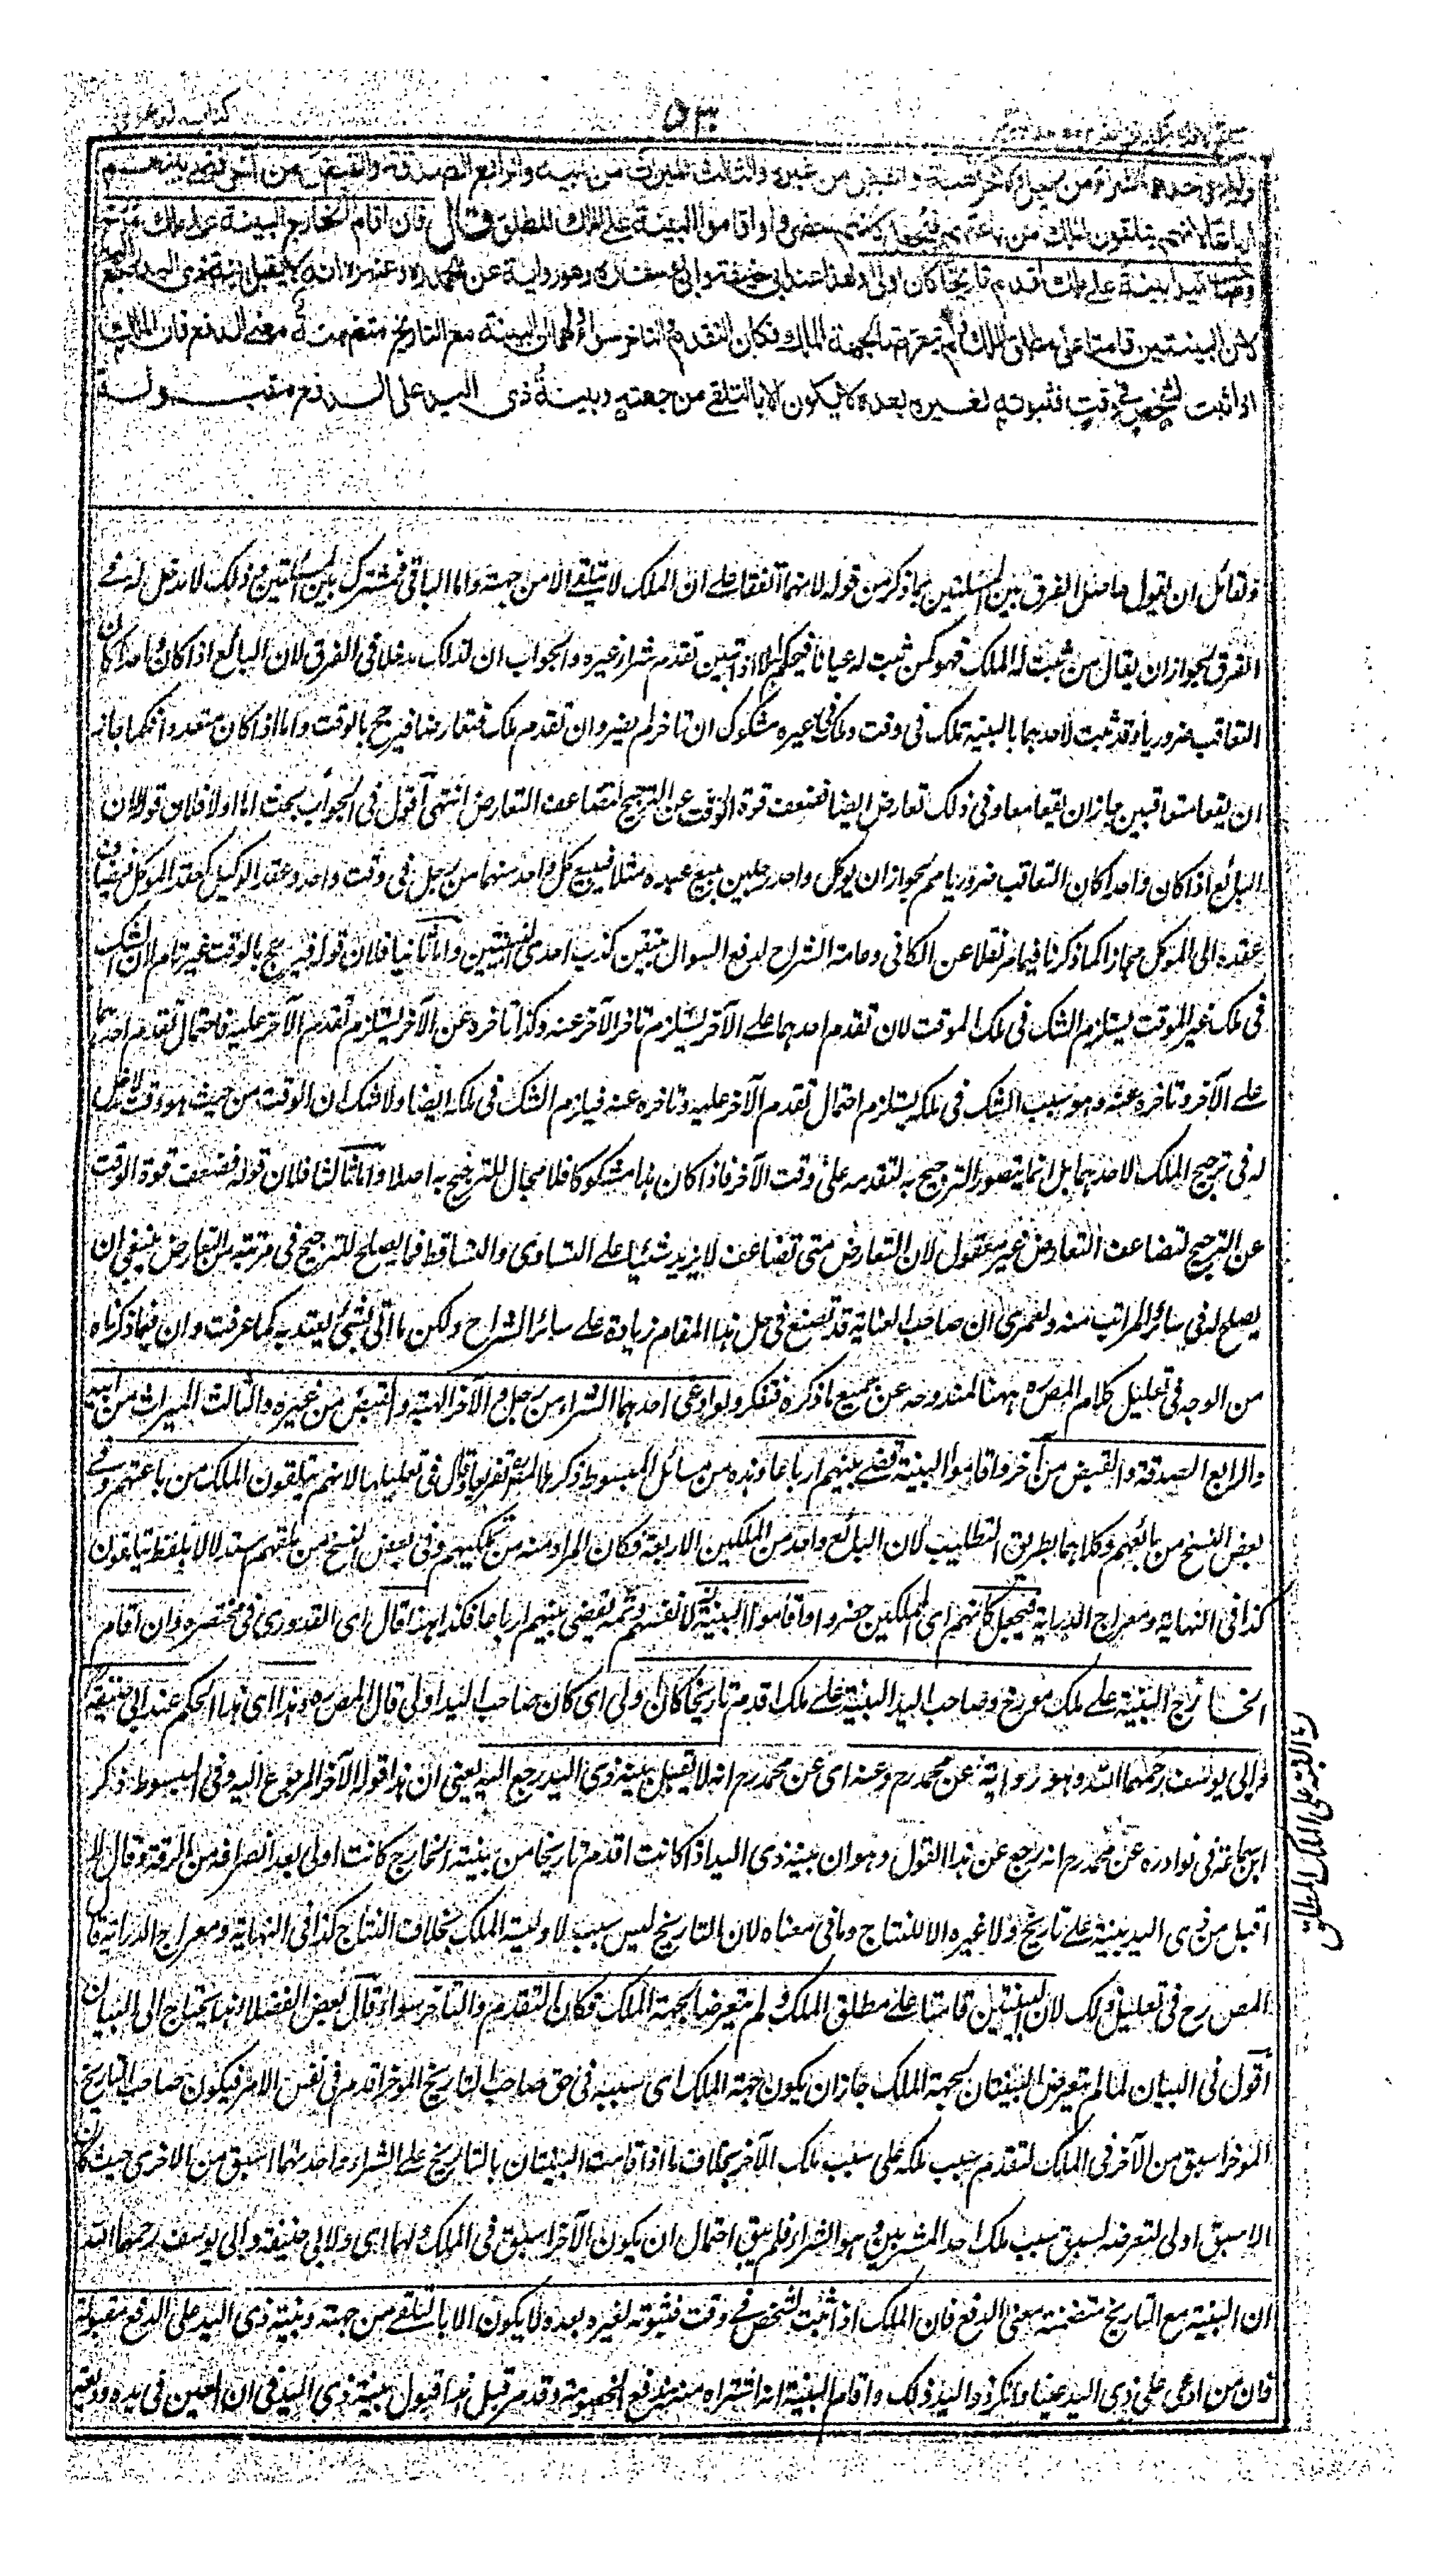 كتاب الدعوى
٥٣
ولو ادعى احدهما الشراء من رجل والآخر الهبة والقبض من غيره والثالث الميراث من ابيه والرابع الصدقة والقبض من آخر قضى بينهم
ارباعا لانهم يتلقون الملك من باعتهم فيجعل كانهم حضروا واقاموا البينة على الملك المطلق قال فان اقام الخارج البينة على ملك مؤرخ
وصاحب اليد البينة على ملك اقدم تاريخا كان اولى وهذا عند ابي حنيفة وابي يوسف رح وهو رواية عن محمد رح وعنه انه لا يقبل بينة ذي اليد رجع اليه
لان البينتين قامتا على مطلق الملك ولم يتعرضا لجهة الملك فكان التقدم والتاخر سواء ولهما ان البينة مع التاريخ متضمنة معنى الدفع فان الملك
اذا ثبت لشخص في وقت فثبوته لغيره بعده لا يكون الا بالتلقي من جهته وبينة ذي اليد على الدفع مقبولة
ولقائل ان يقول حاصل الفرق بين المسئلتين بما ذكر من قوله لانهما اتفقا على ان الملك لا يتلقى الا من جهته واما الباقي فمشترك بين المسئلتين وذلك لا مدخل له في
الفرق لجواز ان يقال من ثبت له الملك فهو كمن ثبت له عيانا فيحكم به الا اذا تبين تقدم شراء غيره والجواب ان لذلك مدخلا في الفرق لان البائع اذا كان واحدا كان
التعاقب ضروريا وقد ثبت لاحدهما بالبينة ملك في وقت وملك غيره مشكوك ان تاخر لم يضر وان تقدم ملك فتعارضا فيرجح بالوقت واما اذا كان متعددا فكما جاز
ان يقعا متعاقبين جاز ان يقعا معا وفي ذلك تعارض ايضا فضعف قوة الوقت عن الترجيح لتضاعف التعارض انتهى اقول في الجواب بحث اما اولا فلان قوله لان
البائع اذا كان واحدا كان التعاقب ضروريا مم لجواز ان يوكل واحد رجلين ببيع عبده مثلا فيبيع كل واحد منهما من رجل في وقت واحد وعقد الوكيل كعقد الموكل فيضاف
عقده الى الموكل مجازا كما ذكرنا فيما مر نقلا عن الكافي وعامة الشراح لدفع السوال بتيقن كذب احدى البينتين واما ثانيا فلان قوله فيرجح بالوقت غير تام لان الشك
في ملك غير الموقت يستلزم الشك في ملك الموقت لان تقدم احدهما على الآخر يستلزم تاخر الآخر عنه وكذا تاخره عن الآخر يستلزم تقدم الآخر عليه فاحتمال تقدم احدهما
على الآخر وتاخره عنه وهو سبب الشك في ملكه يستلزم احتمال تقدم الآخر عليه وتاخره عنه فيلزم الشك في ملكه ايضا ولا شك ان الوقت من حيث هو وقت لا مدخل
له في ترجيح الملك لاحدهما بل انما يتصور الترجيح به لتقدمه على وقت الآخر فاذا كان هذا مشكوكا فلا مجال للترجيح به اصلا واما ثالثا فلان قوله فضعف قوة الوقت
عن الترجيح لتضاعف التعارض غير معقول لان التعارض متى تضاعف لا يزيد شيئا على التساوي والتساقط فما يصلح للترجيح في مرتبة من التعارض ينبغي ان
يصلح له في سائر المراتب منه ولعمري ان صاحب العناية قد تصنع في حل هذا المقام زيادة على سائر الشراح ولكن ما اتى بشئ يعتد به كما عرفت وان فيما ذكرناه
من الوجه في تعليل كلام المص ره ههنا لمندوحة عن جميع ما ذكره فتفكر ولو ادعى احدهما الشراء من رجل والآخر الهبة والقبض من غيره والثالث الميراث من ابيه
والرابع الصدقة والقبض من آخر واقاموا البينة قضى بينهم ارباعا وهذه من مسائل المبسوط ذكرها المص تفريعا وقال في تعليلها لانهم يتلقون الملك من باعتهم وفي
بعض النسخ من بائعهم وكلاهما بطريق التغليب لان البائع واحد من المملكين الاربعة فكان المراد منه من مملكيهم وفي بعض النسخ من ملقيهم استدلالا بلفظ يتلقون
كذا في النهاية ومعراج الدراية فيجعل كانهم اى المملكين حضروا واقاموا البينة لانفسهم وثمه يقضى بينهم ارباعا فكذا ههنا قال اى القدوري في مختصره وان اقام
الخارج البينة على ملك مورخ وصاحب اليد البينة على ملك اقدم تاريخا كان اولى اى كان صاحب اليد اولى قال المص ره وهذا اى هذا الحكم عند ابي حنيفة
وابي يوسف رحمهما الله وهو رواية عن محمد رح وعنه اى عن محمد رح انه لا تقبل بينة ذوى اليد رجع اليه يعني ان هذا قوله الآخر المرجوع اليه وفي المبسوط ذكر
ابن سماعة في نوادره عن محمد رح انه رجع عن هذا القول وهو ان بينة ذى اليد اذا كانت اقدم تاريخا من بينة الخارج كانت اولى بعد انصرافه من الرقة وقال لا
اقبل من ذى اليد بينة على تاريخ ولا غيره الا النتاج وما في معناه لان التاريخ ليس بسبب لاولية الملك بخلاف النتاج كذا في النهاية ومعراج الدراية قال
المص رح في تعليل ذلك لان البينتين قامتا على مطلق الملك ولم يتعرضا لجهة الملك فكان التقدم والتاخر سواء وقال بعض الفضلاء هذا يحتاج الى البيان
اقول في البيان لما لم يتعرض البينتان لجهة الملك جاز ان يكون جهة الملك اى سببه في حق صاحب التاريخ الموخر اقدم في نفس الامر فيكون صاحب التاريخ
الموخر اسبق من الآخر في الملك لتقدم سبب ملكه على سبب ملك الآخر بخلاف ما اذا قامت البينتان بالتاريخ على الشراء واحدهما اسبق من الاخرى حيث كان
الاسبق اولى لتعرضه لسبق سبب ملك احد المشتريين وهو الشراء فلم يبق احتمال ان يكون الآخر اسبق في الملك ولهما اى ولابي حنيفة وابي يوسف رحمهما الله
ان البينة مع التاريخ متضمنة معنى الدفع فان الملك اذا ثبت لشخص في وقت فثبوته لغيره بعده لا يكون الا بالتلقي من جهته وبينة ذى اليد على الدفع مقبولة
فان من ادعى على ذى اليد عينا وانكر ذو اليد ذلك واقام البينة انه اشتراه منه تندفع الخصومة وقد مر قبل هذا قبول بينة ذى اليد في ان العين في يده وديعة